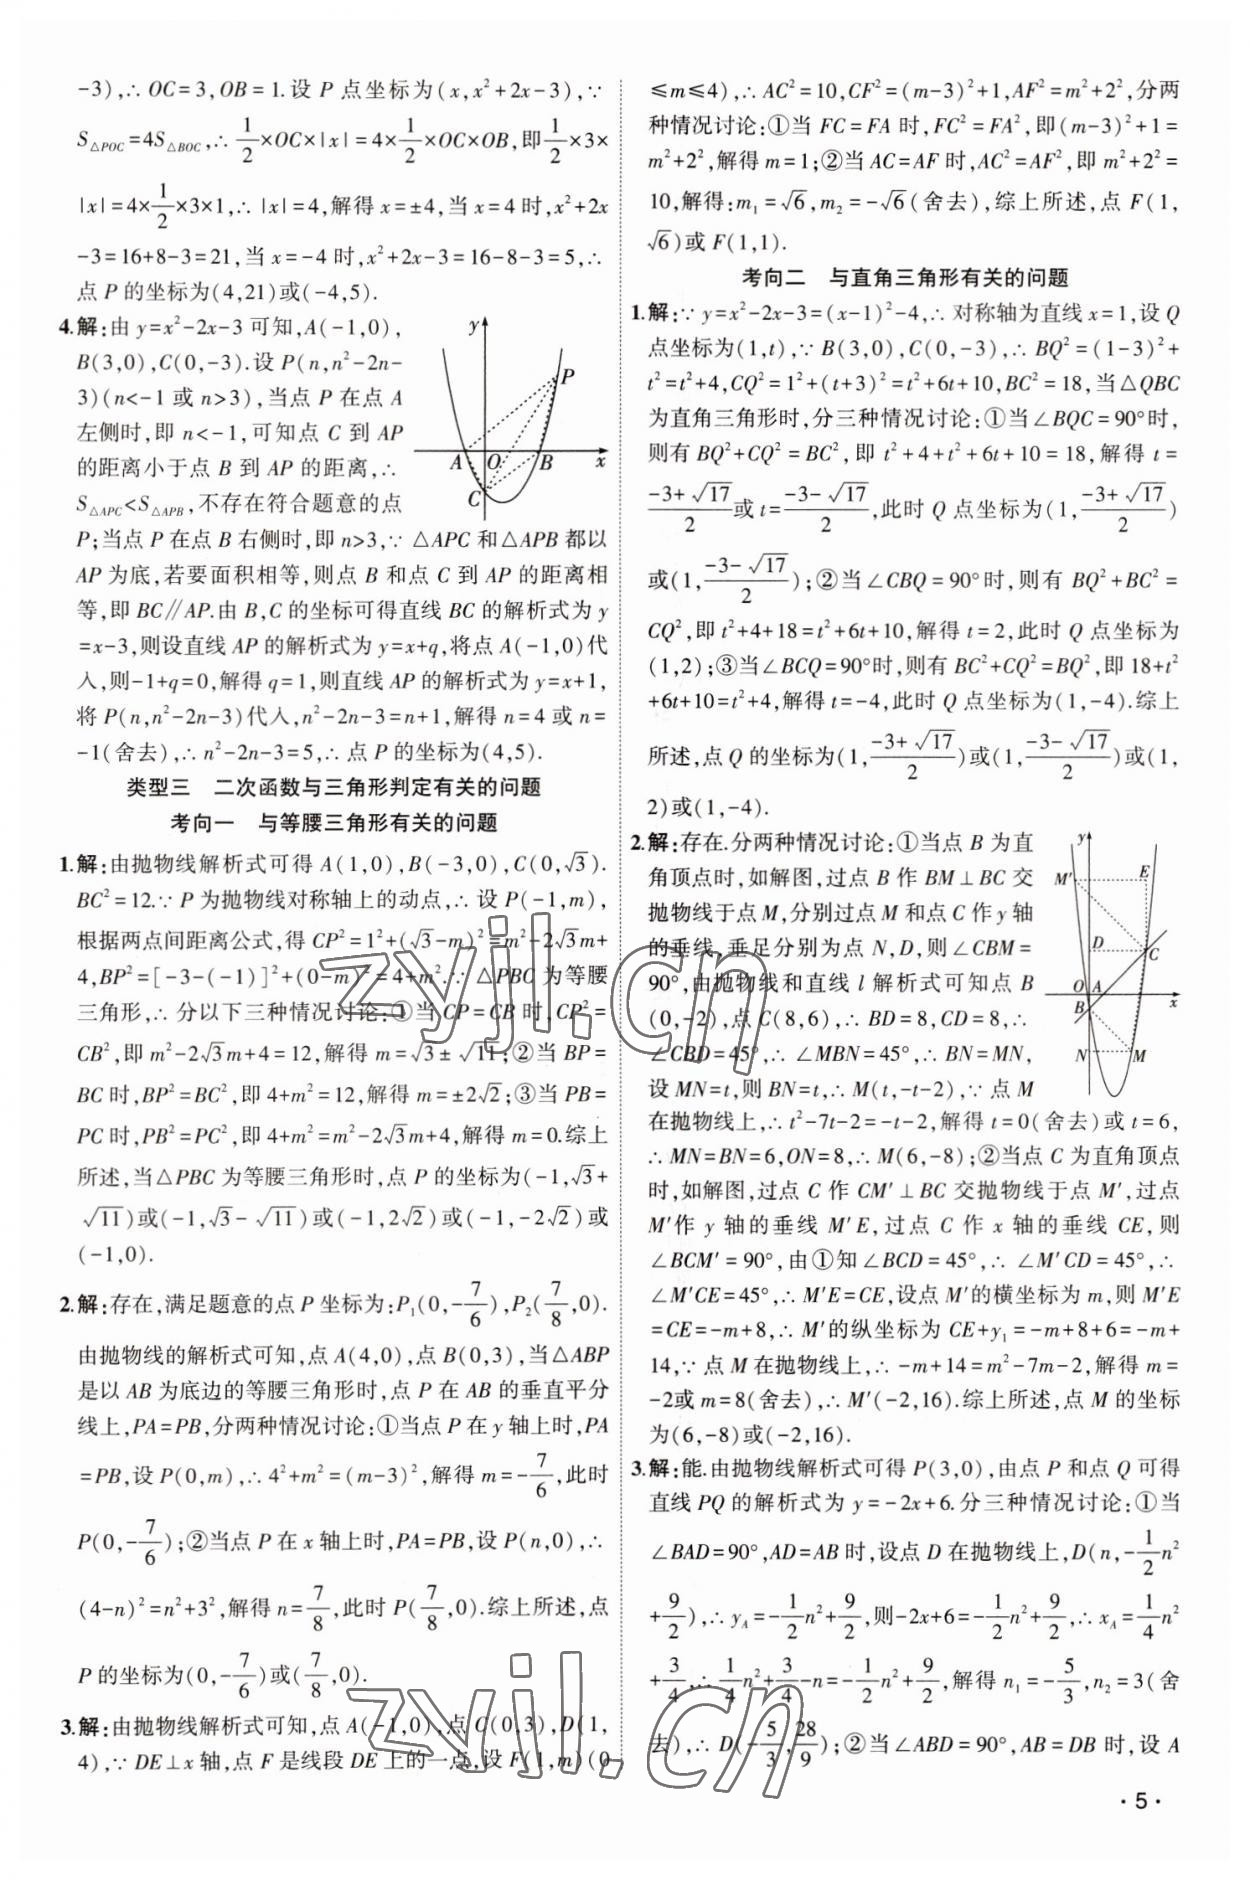 -3),∴OC=3,OB=1.设 P 点坐标为(x,x²+2x-3),∵
S△POC=4S△BOC,∴1/2×OC×|x|=4×1/2×OC×OB,即1/2×3×
|x|=4×1/2×3×1,∴|x|=4,解得x=±4,当x=4时,x²+2x
-3=16+8-3=21,当x=-4时,x²+2x-3=16-8-3=5,∴
点 P 的坐标为(4,21)或(-4,5).
4.解:由y=x²-2x-3可知,A(-1,0),
B(3,0),C(0,-3).设P(n,n²-2n-
3)(n<-1或n>3),当点 P 在点 A
左侧时,即 n<-1,可知点 C 到 AP
的距离小于点 B 到 AP 的距离,∴
S△APC<S△APB,不存在符合题意的点
P;当点 P 在点 B 右侧时,即 n>3,∵△APC和△APB都以
AP为底,若要面积相等,则点 B 和点 C 到 AP 的距离相
等,即BC∥AP.由 B,C 的坐标可得直线 BC 的解析式为 y
=x-3,则设直线 AP 的解析式为y=x+q,将点A(-1,0)代
入,则-1+q=0,解得q=1,则直线 AP 的解析式为y=x+1,
将P(n,n²-2n-3)代入,n²-2n-3=n+1,解得n=4或n=
-1(舍去),∴n²-2n-3=5,∴点 P 的坐标为(4,5).
y
P
A
O
B
x
C
类型三 二次函数与三角形判定有关的问题
考向一 与等腰三角形有关的问题
1.解:由抛物线解析式可得A(1,0),B(-3,0),C(0,√3).
BC²=12.∵P为抛物线对称轴上的动点,∴设P(-1,m),
根据两点间距离公式,得CP²=1²+(√3-m)²=m²-2√3m+
4,BP²=[-3-(-1)]²+(0-m)²=4+m².∵△PBC为等腰
三角形,∴分以下三种情况讨论:①当 CP=CB 时,CP²=
CB²,即m²-2√3m+4=12,解得m=√3±√11;②当 BP=
BC时,BP²=BC²,即4+m²=12,解得m=±2√2;③当PB=
PC时,PB²=PC²,即4+m²=m²-2√3m+4,解得m=0.综上
所述,当△PBC为等腰三角形时,点 P 的坐标为(-1,√3+
√11)或(-1,√3-√11)或(-1,2√2)或(-1,-2√2)或
(-1,0).
2.解:存在,满足题意的点 P 坐标为:P₁(0,-7/6),P₂(7/8,0).
由抛物线的解析式可知,点A(4,0),点B(0,3),当△ABP
是以 AB 为底边的等腰三角形时,点 P 在 AB 的垂直平分
线上,PA=PB,分两种情况讨论:①当点 P 在 y 轴上时,PA
=PB,设P(0,m),∴4²+m²=(m-3)²,解得m=-7/6,此时
P(0,-7/6);②当点 P 在 x 轴上时,PA=PB,设P(n,0),∴
(4-n)²=n²+3²,解得n=7/8,此时P(7/8,0).综上所述,点
P的坐标为(0,-7/6)或(7/8,0).
3.解:由抛物线解析式可知,点A(-1,0),点C(0,3),D(1,
4),∵DE⊥x轴,点 F 是线段 DE 上的一点,设F(1,m)(0
≤m≤4),∴AC²=10,CF²=(m-3)²+1,AF²=m²+2²,分两
种情况讨论:①当 FC=FA 时,FC²=FA²,即(m-3)²+1=
m²+2²,解得m=1;②当 AC=AF 时,AC²=AF²,即m²+2²=
10,解得:m₁=√6,m₂=-√6(舍去),综上所述,点F(1,
√6)或F(1,1).
考向二 与直角三角形有关的问题
1.解:∵y=x²-2x-3=(x-1)²-4,∴对称轴为直线x=1,设 Q
点坐标为(1,t),∵B(3,0),C(0,-3),∴BQ²=(1-3)²+
t²=t²+4,CQ²=1²+(t+3)²=t²+6t+10,BC²=18,当△QBC
为直角三角形时,分三种情况讨论:①当∠BQC=90°时,
则有BQ²+CQ²=BC²,即t²+4+t²+6t+10=18,解得t=
(-3+√17)/2或t=(-3-√17)/2,此时 Q 点坐标为(1,(-3+√17)/2)
或(1,(-3-√17)/2);②当∠CBQ=90°时,则有BQ²+BC²=
CQ²,即t²+4+18=t²+6t+10,解得t=2,此时 Q 点坐标为
(1,2);③当∠BCQ=90°时,则有BC²+CQ²=BQ²,即18+t²
+6t+10=t²+4,解得t=-4,此时 Q 点坐标为(1,-4).综上
所述,点 Q 的坐标为(1,(-3+√17)/2)或(1,(-3-√17)/2)或(1,
2)或(1,-4).
2.解:存在.分两种情况讨论:①当点 B 为直
角顶点时,如解图,过点 B 作 BM⊥BC 交
抛物线于点 M,分别过点 M 和点 C 作 y 轴
的垂线,垂足分别为点 N,D,则∠CBM=
90°,由抛物线和直线 l 解析式可知点 B
(0,-2),点C(8,6),∴BD=8,CD=8,∴
∠CBD=45°,∴∠MBN=45°,∴BN=MN,
设MN=t,则BN=t,∴M(t,-t-2),∵点 M
在抛物线上,∴t²-7t-2=-t-2,解得t=0(舍去)或t=6,
∴MN=BN=6,ON=8,∴M(6,-8);②当点 C 为直角顶点
时,如解图,过点 C 作 CM′⊥BC 交抛物线于点 M′,过点
M′作 y 轴的垂线 M′E,过点 C 作 x 轴的垂线 CE,则
∠BCM′=90°,由①知∠BCD=45°,∴∠M′CD=45°,∴
∠M′CE=45°,∴M′E=CE,设点M′的横坐标为m,则M′E
=CE=-m+8,∴M′的纵坐标为 CE+y₁=-m+8+6=-m+
14,∵点 M 在抛物线上,∴-m+14=m²-7m-2,解得m=
-2或m=8(舍去),∴M′(-2,16).综上所述,点 M 的坐标
为(6,-8)或(-2,16).
y
M′
E
D
C
O
A
x
B
N
M
3.解:能.由抛物线解析式可得P(3,0),由点 P 和点 Q 可得
直线 PQ 的解析式为y=-2x+6.分三种情况讨论:①当
∠BAD=90°,AD=AB时,设点 D 在抛物线上,D(n,-1/2n²
+9/2),∴yA=-1/2n²+9/2,则-2x+6=-1/2n²+9/2,∴xA=1/4n²
+3/4,∴1/4n²+3/4-n=-1/2n²+9/2,解得n₁=-5/3,n₂=3(舍
去),∴D(-5/3,28/9);②当∠ABD=90°,AB=DB时,设 A
·5·
zyjl.cn
zyjl.cn